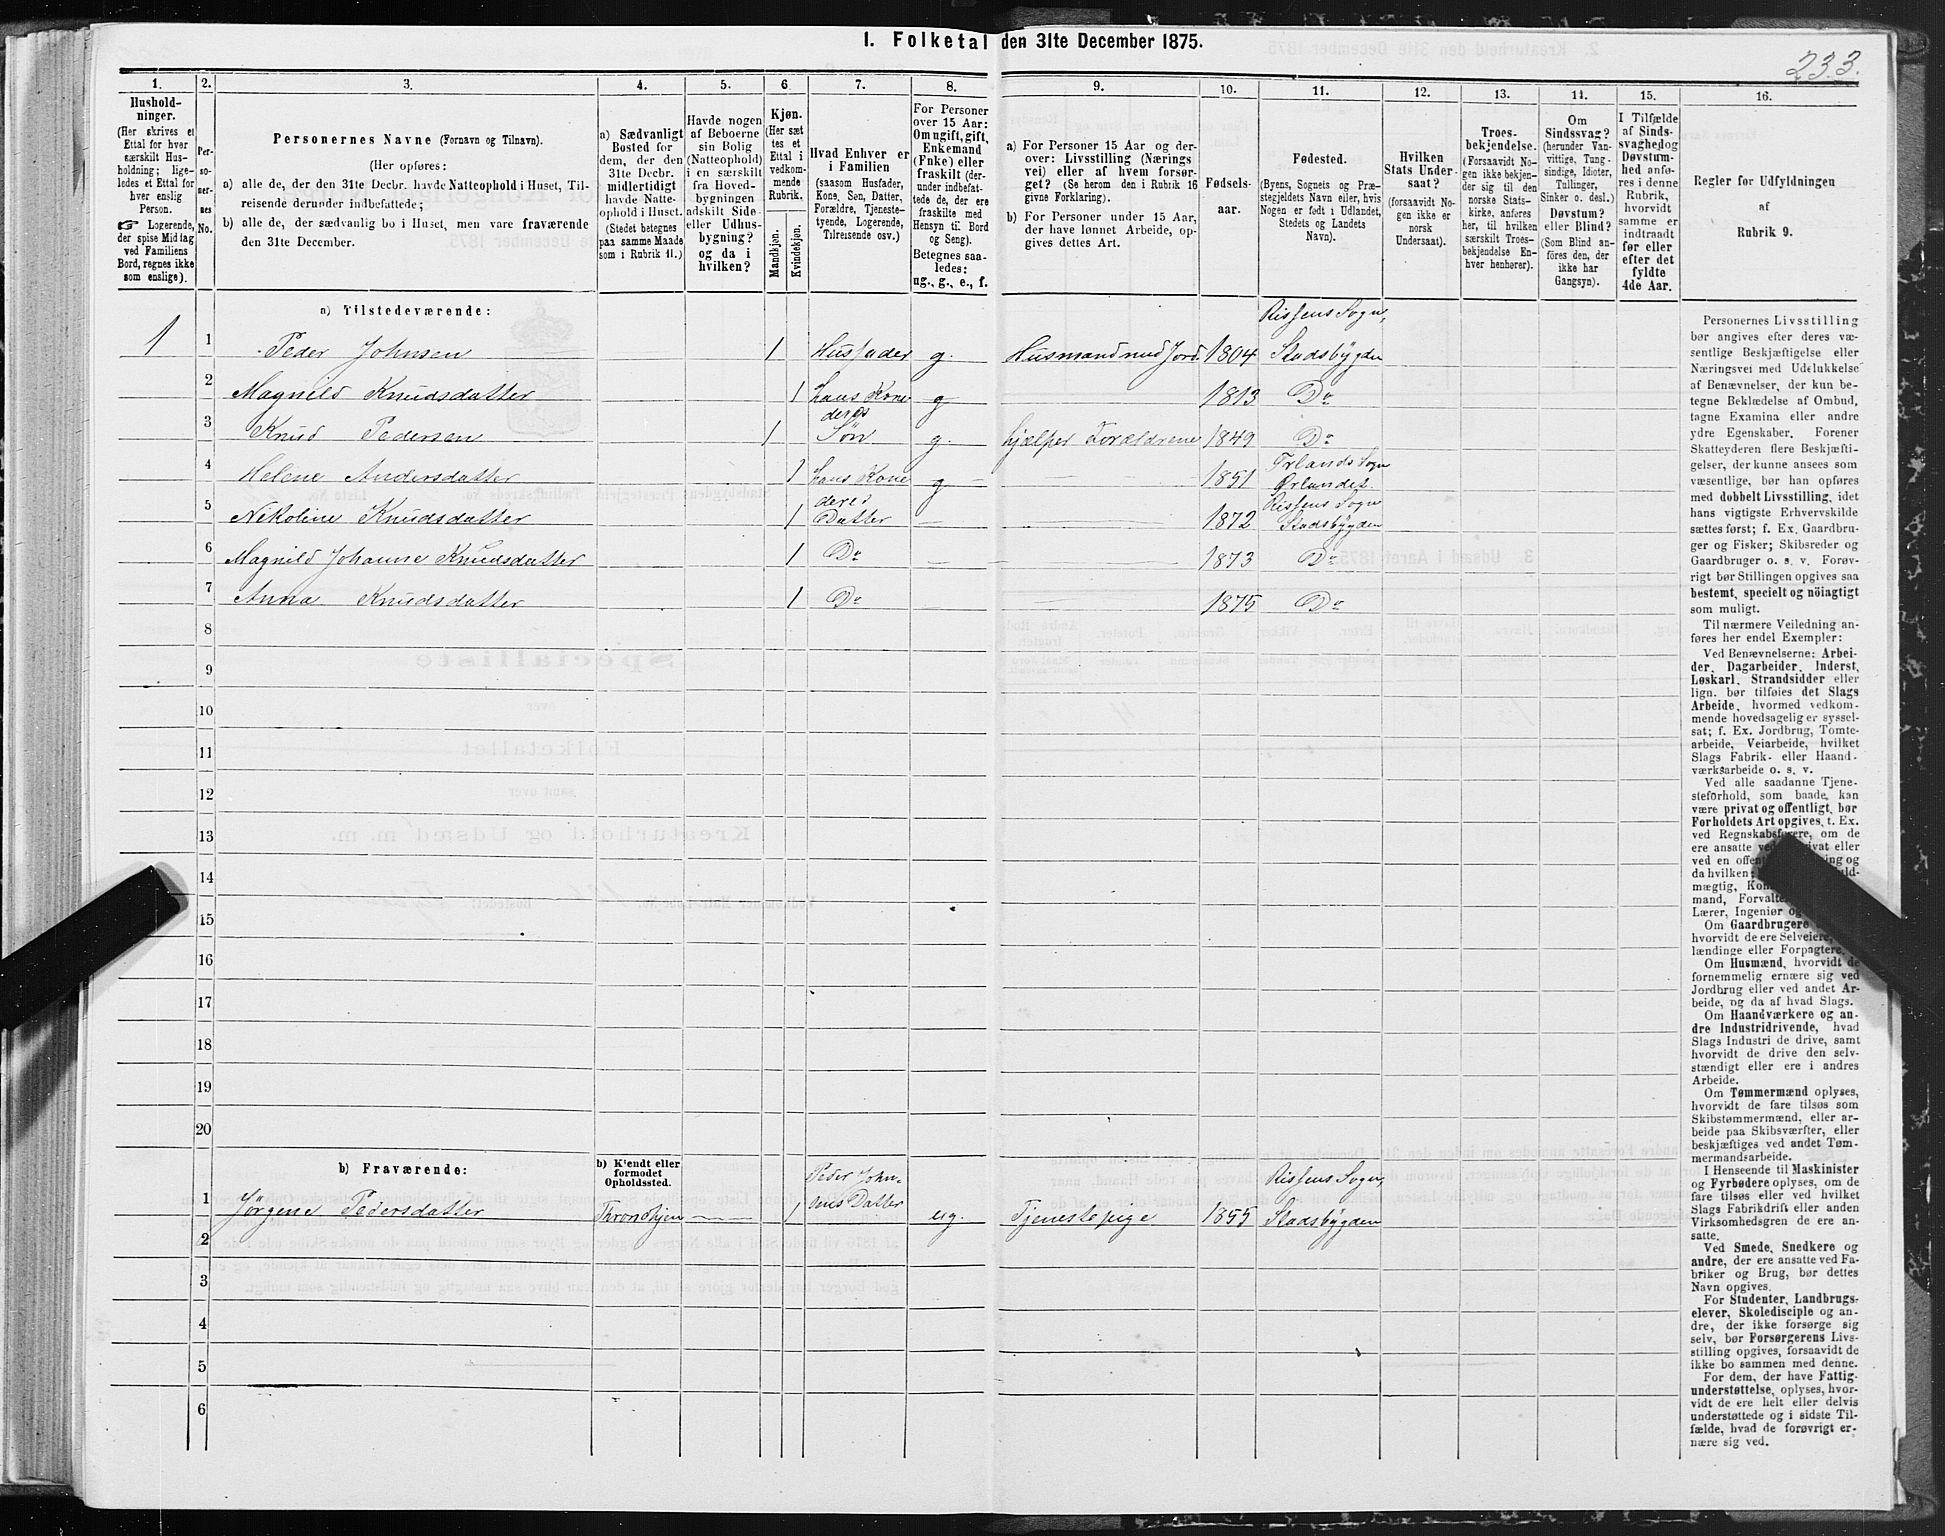 1. Folketal den 31te December 1875.
233.
1.
2.
3.
4.
5.
6
7.
8.
9.
10.
11.
12.
13.
14.
15.
16.
Hushold-
ninger.
(Her skrives et
Ettal for hver
særskilt Hus-
holdning; lige-
ledes et Ettal for
hver enslig
Person.
☞ Logerende,
der spise Middag
ved Familiens
Bord, regnes ikke
som enslige).
Per-
so-
ner-
nes
No.
Personernes Navne (Fornavn og Tilnavn).
(Her opføres:
a) alle de, der den 31te Decbr. havde Natteophold i Huset, Til-
reisende derunder indbefattede;
b) alle de, der sædvanlig bo i Huset, men vare fraværende
den 31te December.
a) Sædvanligt
Bosted for
dem, der den
31te Decbr.
midlertidigt
havde Natte-
ophold i Huset.
(Stedet betegnes
paa samme Maade
som i Rubrik 11.)
Havde nogen
af Beboerne
sin Bolig
(Natteophold)
i en særskilt
fra Hoved-
bygningen
adskilt Side-
eller Udhus-
bygning?
og da i
hvilken?
Kjøn.
(Her sæt
tes et
Ettal i
vedkom-
mende
Rubrik.
Mandkjøn.
Kvindekjøn.
Hvad Enhver er
i Familien
(saasom Husfader,
Kone, Søn, Datter,
Forældre, Tjeneste-
tyende, Logerende,
Tilreisende osv.)
For Personer
over 15 Aar:
Om ugift, gift,
Enkemand
(Enke) eller
fraskilt (der-
under indbefat-
tede de, der ere
fraskilte med
Hensyn til Bord
og Seng).
Betegnes saa-
ledes:
ug., g., e., f.
a) For Personer 15 Aar og der-
over: Livsstilling (Nærings
vei) eller af hvem forsør-
get? (Se herom den i Rubrik 16
givne Forklaring).
b) For Personer under 15 Aar,
der have lønnet Arbeide, op-
gives dettes Art.
Fødsels-
aar.
Fødested.
(Byens, Sognets og Præ-
stegjeldets Navn eller, hvis
Nogen er født i Udlandet,
Stedets og Landets
Navn).
Hvilken
Stats Under-
saat?
(forsaavidt No-
gen ikke er
norsk
Undersaat).
Troes-
bekjendelse.
(Forsaavidt No-
gen ikke bekjen-
der sig til den
norske Stats-
kirke, anføres
her, til hvilken
særskilt Troes-
bekjendelse En-
hver henhører).
Om
Sindssvag?
(herunder Van-
vittige, Tung-
sindige, Idioter,
Tullinger,
Sinker o. desl.)
Døvstum?
eller Blind?
(Som Blind an-
føres den, der
ikke har
Gangsyn).
I Tilfælde
af Sinds-
svaghed og
Døvstum-
hed anfø-
res i denne
Rubrik,
hvorvidt
samme er
indtraadt
før eller
efter det
fyldte
4de Aar.
Regler for Udfyldningen
af
Rubrik 9.
a) Tilstedeværende:
Rissens Sogn,
1 1 Peder Johnsen 1 Husfader g. Husmand med Jord. 1804 Stadsbygden
2 Magnild Knudsdatter 1 hans Kone g 1813 Do
deres
3 Knud Pedersen 1 Søn g. hjælper Forældrene 1849 Do
Ørlands Sogn
4 Helene Andersdatter 1 hans Kone g 1851 Ørlandet.
deres Rissens Sogn
5 Nikoline Knudsdatter 1 Datter 1872 Stadsbygden
6 Magnild Johanne Knudsdatter 1 Do 1873 Do
7 Anna Knudsdatter 1 Do 1875 Do
8
9
10
11
12
13
14
15
16
17
18
19
20
b) Fraværende:
b) Kjendt eller
formodet
Opholdssted.
Peder John- Rissens Sogn,
1 Jørgene Pedersdatter Throndhjem 1 sens Datter ug. Tjenestepige 1855 Stadsbygden
2
3
4
5
6
Personernes Livsstilling
bør angives efter deres væ-
sentlige Beskjæftigelse eller
Næringsvei med Udelukkelse
af Benævnelser, der kun be-
tegne Beklædelse af Ombud,
tagne Examina eller andre
ydre Egenskaber. Forener
Skatteyderen flere Beskjæfti-
gelser, der kunne ansees som
væsentlige, bør han opføres
med dobbelt Livsstilling, idet
hans vigtigste Erhvervskilde
sættes først; f. Ex. Gaardbru-
ger og Fisker; Skibsreder og
Gaardbruger o. s. v. Forøv-
rigt bør Stillingen opgives saa
bestemt, specielt og nöiagtigt
som muligt.
Til nærmere Veiledning an-
føres her endel Exempler:
Ved Benævnelserne: Arbei-
der, Dagarbeider, Inderst,
Løskarl, Strandsidder eller
lign. bør tilføies det Slags
Arbeide, hvormed vedkom-
mende hovedsagelig er syssel-
sat; f. Ex. Jordbrug, Tomte-
arbeide, Veiarbeide, hvilket
Slags Fabrik- eller Haand-
værksarbeide o. s. v.
Ved alle saadanne Tjene-
steforhold, som baade kan
være privat og offentligt, bør
Forholdets Art opgives, t. Ex.
ved Regnskabsførere, om de
ere ansatte ved privat eller
ved en offent ing og
da hvilken; uld-
mægtig, Kon
mand, Forvalte
Lærer, Ingeniør og
Om Gaardbrugere
hvorvidt de ere Selveiere,
lændinge eller Forpagtere.
Om Husmænd, hvorvidt de
fornemmelig ernære sig ved
Jordbrug eller ved andet Ar-
beide, og da af hvad Slags.
Om Haandværkere og an-
dre Industridrivende, hvad
Slags Industri de drive, samt
hvorvidt de drive den selv-
stændigt eller ere i andres
Arbeide.
Om Tømmermænd oplyses,
hvorvidt de fare tilsøs som
Skibstømmermænd, eller ar-
beide paa Skibsværfter, eller
beskjæftiges ved andet Tøm-
mermandsarbeide.
I Henseende til Maskinister
og Fyrbødere oplyses, om de
fare tilsøs eller ved hvilket
Slags Fabrikdrift eller anden
Virksomhedsgren de ere an-
satte.
Ved Smede, Snedkere og
andre, der ere ansatte ved Fa-
briker og Brug, bør dettes
Navn opgives.
For Studenter, Landbrugs-
elever, Skoledisciple og an-
dre, der ikke forsørge sig
selv, bør Forsørgerens Livs-
stilling opgives, forsaavidt de
ikke bo sammen med denne.
For dem, der have Fattig-
understøttelse, oplyses, hvor-
vidt de ere helt eller delvis
understøttede og i sidste Til-
fælde, hvad de forøvrigt er-
nære sig ved.